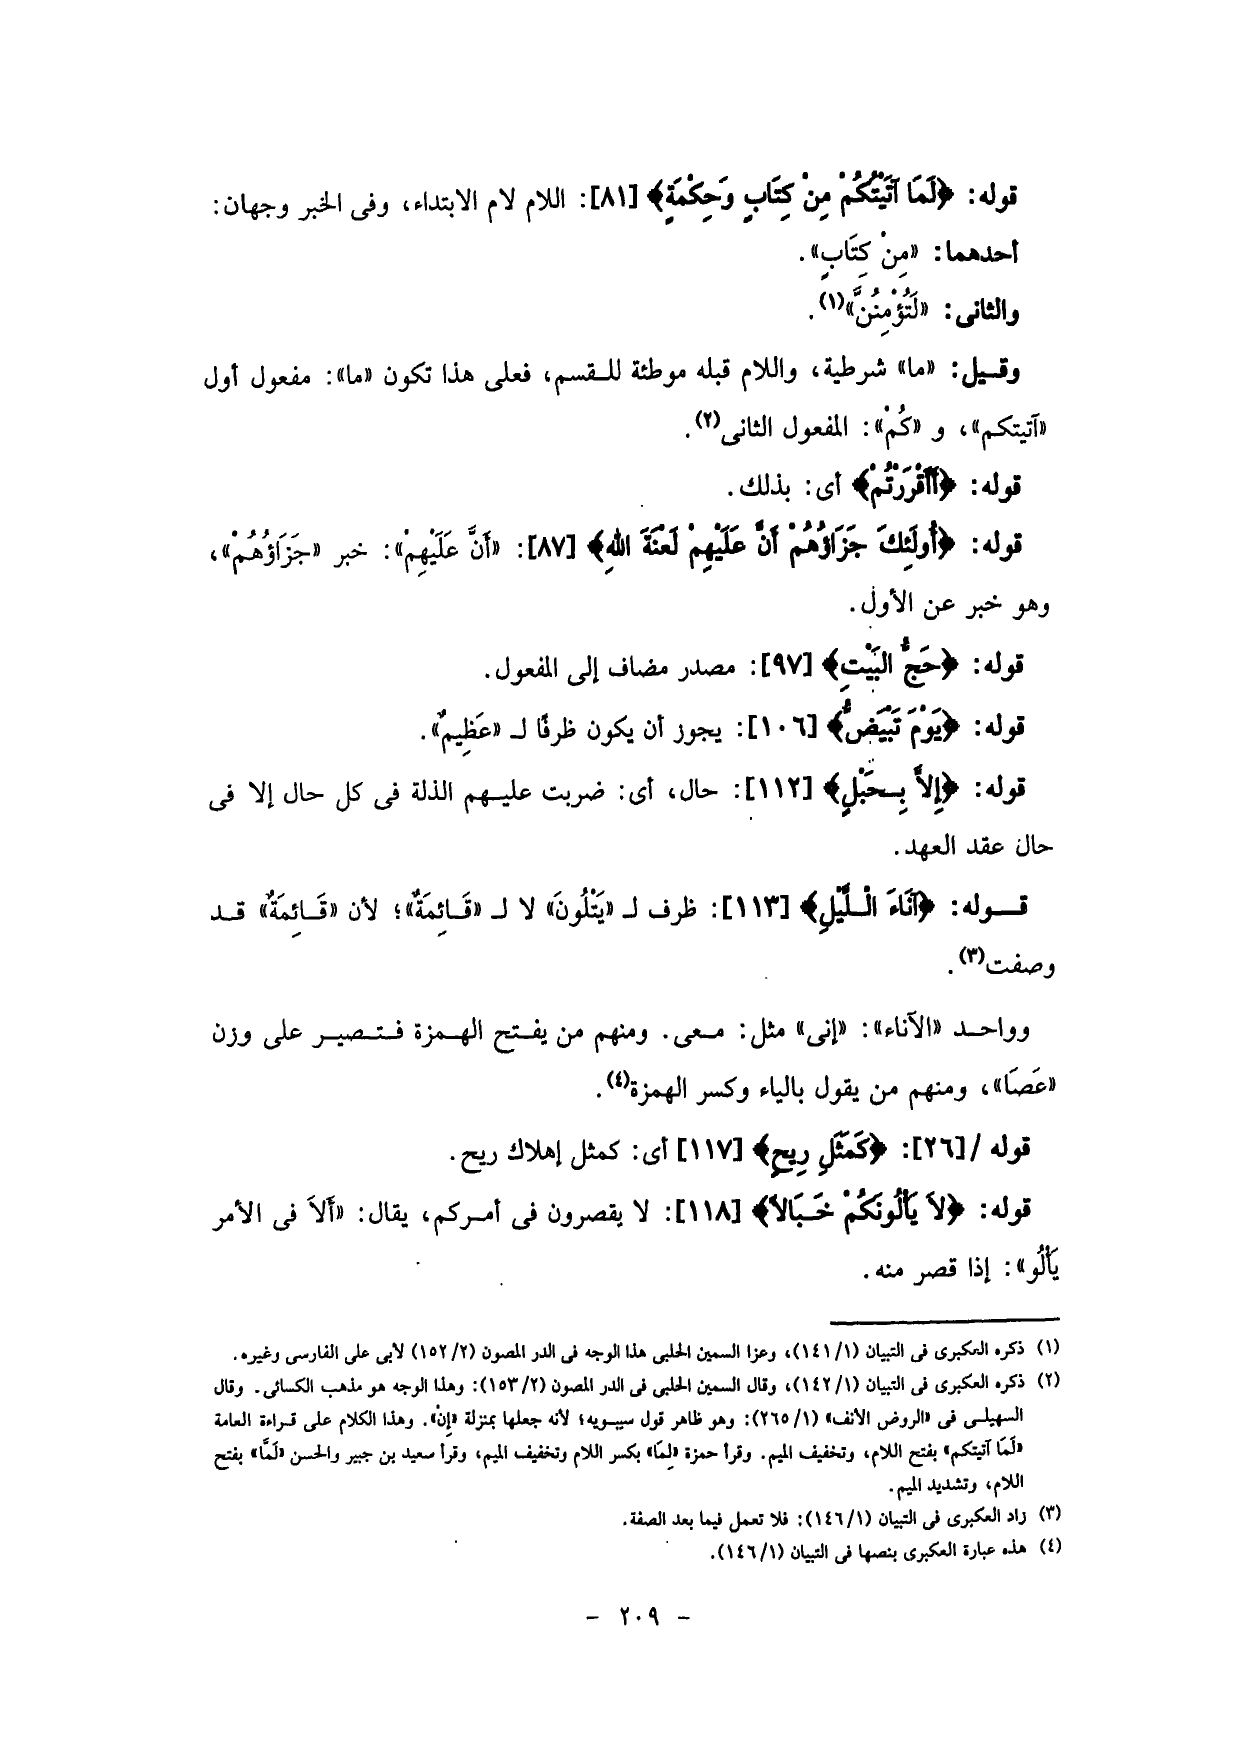 قوله: ﴿لَمَا آتَيْتُكُمْ مِنْ كِتَابٍ وَحِكْمَةٍ﴾ [٨١]: اللام لام الابتداء، وفى الخبر وجهان:
أحدهما: «مِنْ كِتَابٍ».
والثانى: «لَتُؤْمِنُنَّ»(١).
وقـيل: «ما» شرطية، واللام قبله موطئة للـقسم، فعلى هذا تكون «ما»: مفعول أول
«آتيتكم»، و «كُمْ»: المفعول الثانى(٢).
قوله: ﴿أَأَقْرَرْتُمْ﴾ أى: بذلك.
قوله: ﴿أُولَئِكَ جَزَاؤُهُمْ أَنَّ عَلَيْهِمْ لَعْنَةَ اللهِ﴾ [٨٧]: «أَنَّ عَلَيْهِمْ»: خبر «جَزَاؤُهُمْ»،
وهو خبر عن الأول.
قوله: ﴿حَجُّ الْبَيْتِ﴾ [٩٧]: مصدر مضاف إلى المفعول.
قوله: ﴿يَوْمَ تَبْيَضُّ﴾ [١٠٦]: يجوز أن يكون ظرفًا لـ «عَظِيمٌ».
قوله: ﴿إِلاَّ بِـحَبْلٍ﴾ [١١٢]: حال، أى: ضربت عليـهم الذلة فى كل حال إلا فى
حال عقد العهد.
قـــوله: ﴿آنَاءَ الْـلَّيْلِ﴾ [١١٣]: ظرف لـ «يَتْلُونَ» لا لـ «قَـائِمَةٌ»؛ لأن «قَـائِمَةٌ» قـد
وصفت(٣).
وواحـد «الآناء»: «إنى» مثل: مـعى. ومنهم من يفـتح الهـمزة فـتـصيـر على وزن
«عَصَا»، ومنهم من يقول بالياء وكسر الهمزة(٤).
قوله /[٢٦]: ﴿كَمَثَلِ رِيحٍ﴾ [١١٧] أى: كمثل إهلاك ريح.
قوله: ﴿لاَ يَأْلُونَكُمْ خَـبَالاً﴾ [١١٨]: لا يقصرون فى أمـركم، يقال: «أَلاَ فى الأمر
يَأْلُو»: إذا قصر منه.
(١) ذكره العكبرى فى التبيان (١/ ١٤١)، وعزا السمين الحلبى هذا الوجه فى الدر المصون (٢/ ١٥٢) لأبى على الفارسى وغيره.
(٢) ذكره العكبرى فى التبيان (١/ ١٤٢)، وقال السمين الحلبى فى الدر المصون (٢/ ١٥٣): وهذا الوجه هو مذهب الكسائى. وقال
السهيلـى فى «الروض الأنف» (١/ ٢٦٥): وهو ظاهر قول سيبـويه؛ لأنه جعلها بمنزلة «إن». وهذا الكلام على قـراءة العامة
«لَمَا آتيتكم» بفتح اللام، وتخفيف الميم. وقرأ حمزة «لِمَا» بكسر اللام وتخفيف الميم، وقرأ سعيد بن جبير والحسن «لَمَّا» بفتح
اللام، وتشديد الميم.
(٣) زاد العكبرى فى التبيان (١/ ١٤٦): فلا تعمل فيما بعد الصفة.
(٤) هذه عبارة العكبرى بنصها فى التبيان (١/ ١٤٦).
- ٢٠٩ -